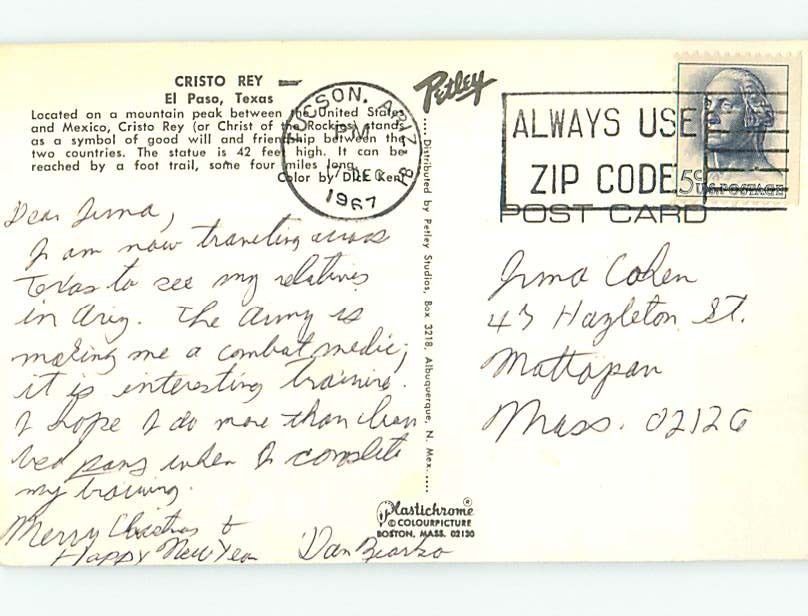 CRISTO REY
El Paso, Texas
Located on a mountain peak between the United States
and Mexico, Cristo Rey (or Christ of the Rockies) stands
as a symbol of good will and friendship between the
two countries. The statue is 42 feet high. It can be
reached by a foot trail, some four miles long.
Color by Dick Kent
Dear Irma,
I am now traveling across
Texas to see my relatives
in Ariz. The Army is
making me a combat medic;
it is interesting training.
I hope I do more than clean
bed pans when I complete
my training.
Merry Christmas &
Happy New Year Dan
Petley
.... Distributed by Petley Studios, Box 3218, Albuquerque, N. Mex. ....
Plastichrome®
© COLOURPICTURE
BOSTON, MASS. 02130
TUCSON, ARIZ
PM
DEC
1967
ALWAYS USE
ZIP CODE
5¢
U.S. POSTAGE
POST CARD
Irma Cohen
43 Hazleton St.
Mattapan
Mass. 02126